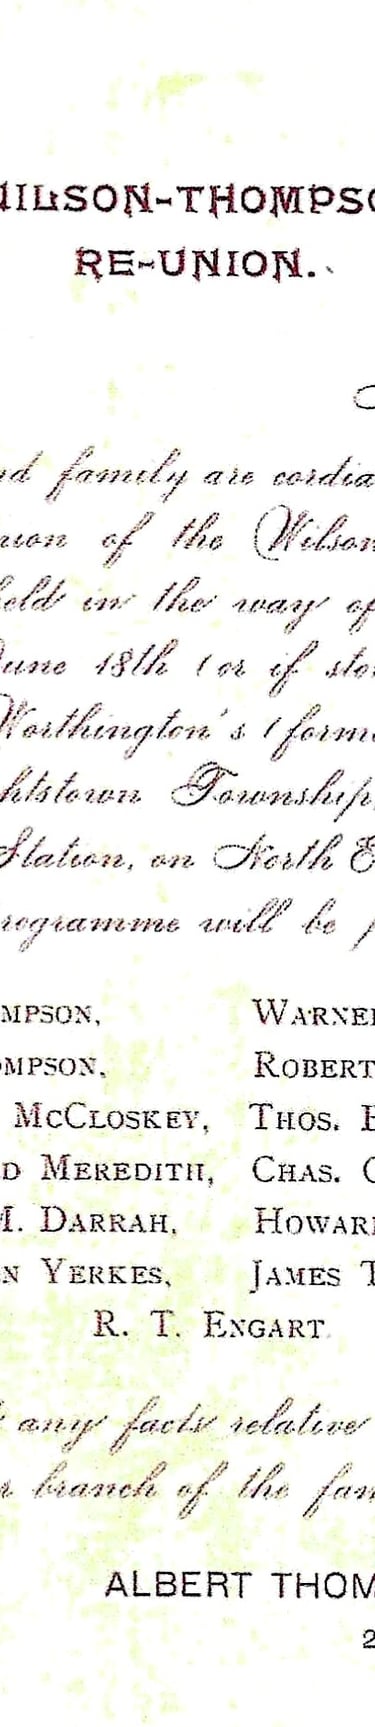 WILSON-THOMPSO
RE-UNION.
nd family are cordia
union of the Wilson
held in the way of
June 18th (or if sto
Worthington's (forme
htstown Township,
Station, on North E
rogramme will be p
MPSON, WARNER
OMPSON, ROBERT
McCLOSKEY, THOS. B
D MEREDITH, CHAS. C
M. DARRAH, HOWARD
N YERKES, JAMES T
R. T. ENGART
any facts relative
r branch of the fam
ALBERT THOM
2